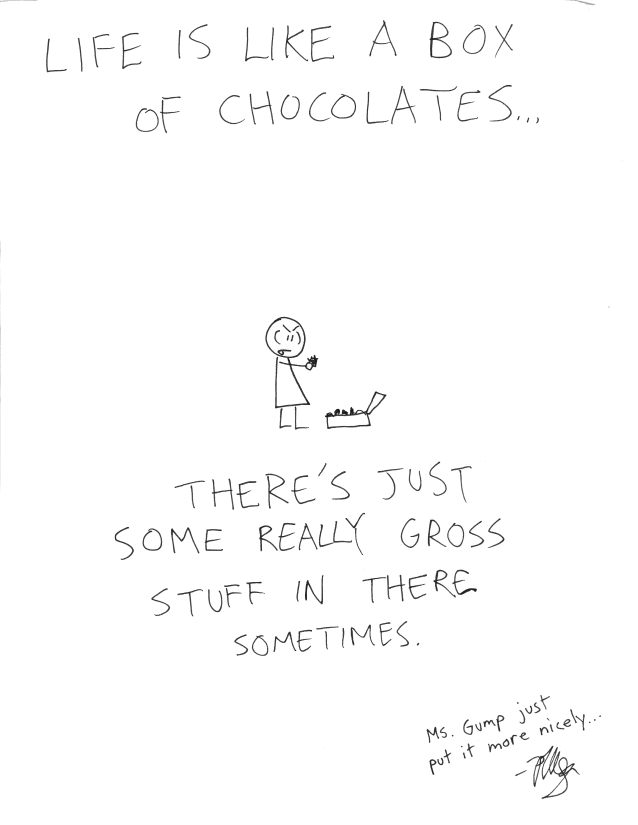 LIFE IS LIKE A BOX
OF CHOCOLATES...
THERE'S JUST
SOME REALLY GROSS
STUFF IN THERE
SOMETIMES.
Ms. Gump just
put it more nicely...